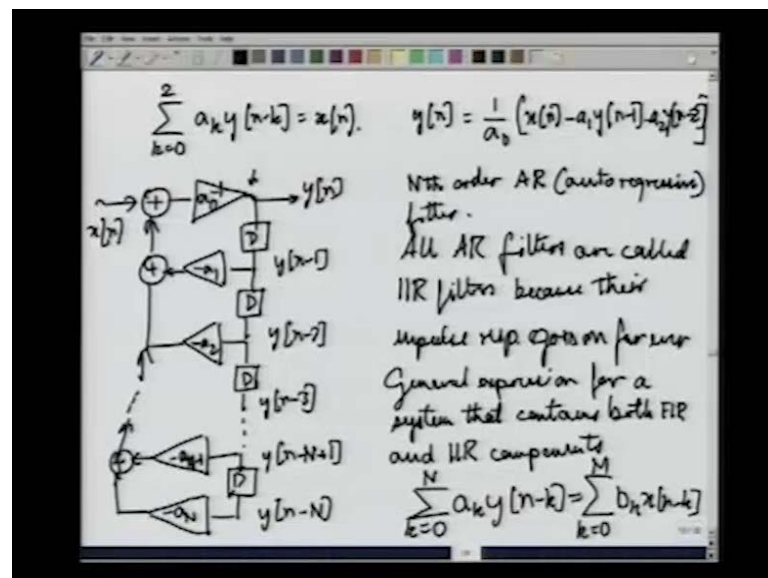 2
∑ aₖ y[n-k] = x[n].
k=0
y[n] = 1/a₀ (x[n] - a₁y[n-1] - a₂y[n-2]]
x[n]
+
a₀⁻¹
y[n]
D
+
-a₁
y[n-1]
D
-a₂
y[n-2]
D
y[n-3]
+
y[n-N+1]
D
-a_N
y[n-N]
Nth order AR (autoregressive)
filter.
All AR filters are called
IIR filters because their
impulse resp. goes on forever
General expression for a
system that contains both FIR
and IIR components
N
∑ aₖ y[n-k] = 
k=0
M
∑ bₖ x[n-k]
k=0